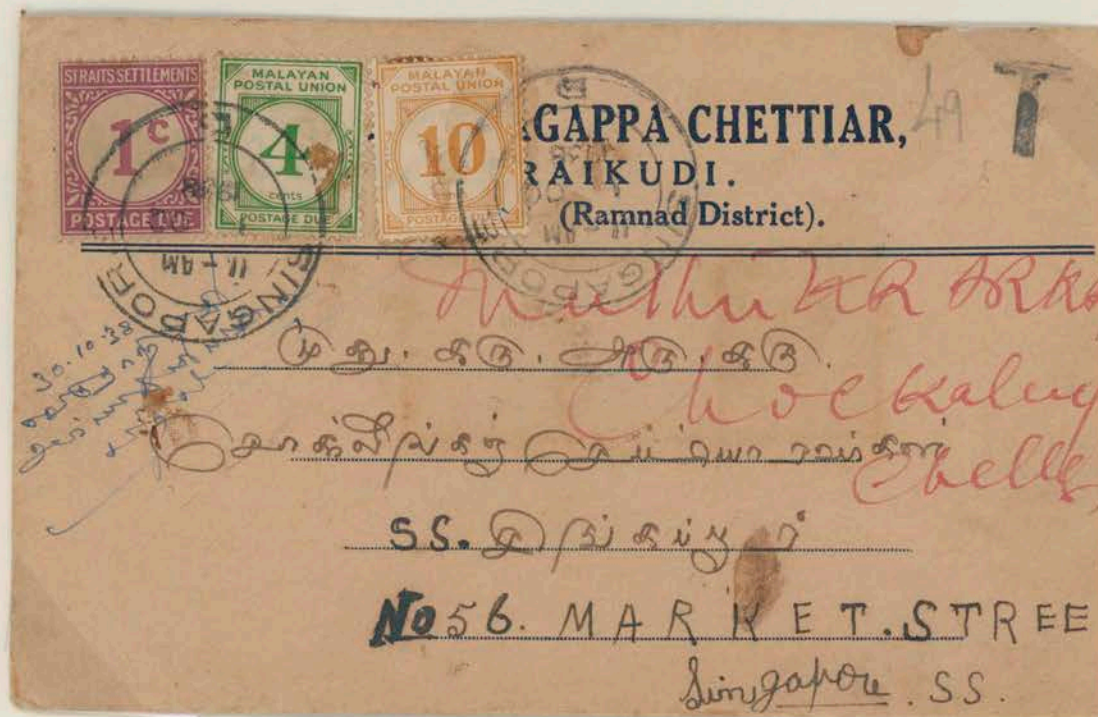 STRAITS SETTLEMENTS
1c
POSTAGE DUE
MALAYAN
POSTAL UNION
4
cents
POSTAGE DUE
MALAYAN
POSTAL UNION
10
POSTAGE DUE
SINGAPORE
11 - AM
SINGAPORE
11 - AM
49 T
GAPPA CHETTIAR,
RAIKUDI.
(Ramnad District).
Muthu KR ARKR
Chockaling
Chetty
30.10.38
முது. கரு. அரு. கரு.
SS. சிங்கப்பூர்
No 56. MARKET. STREE
Singapore. SS.